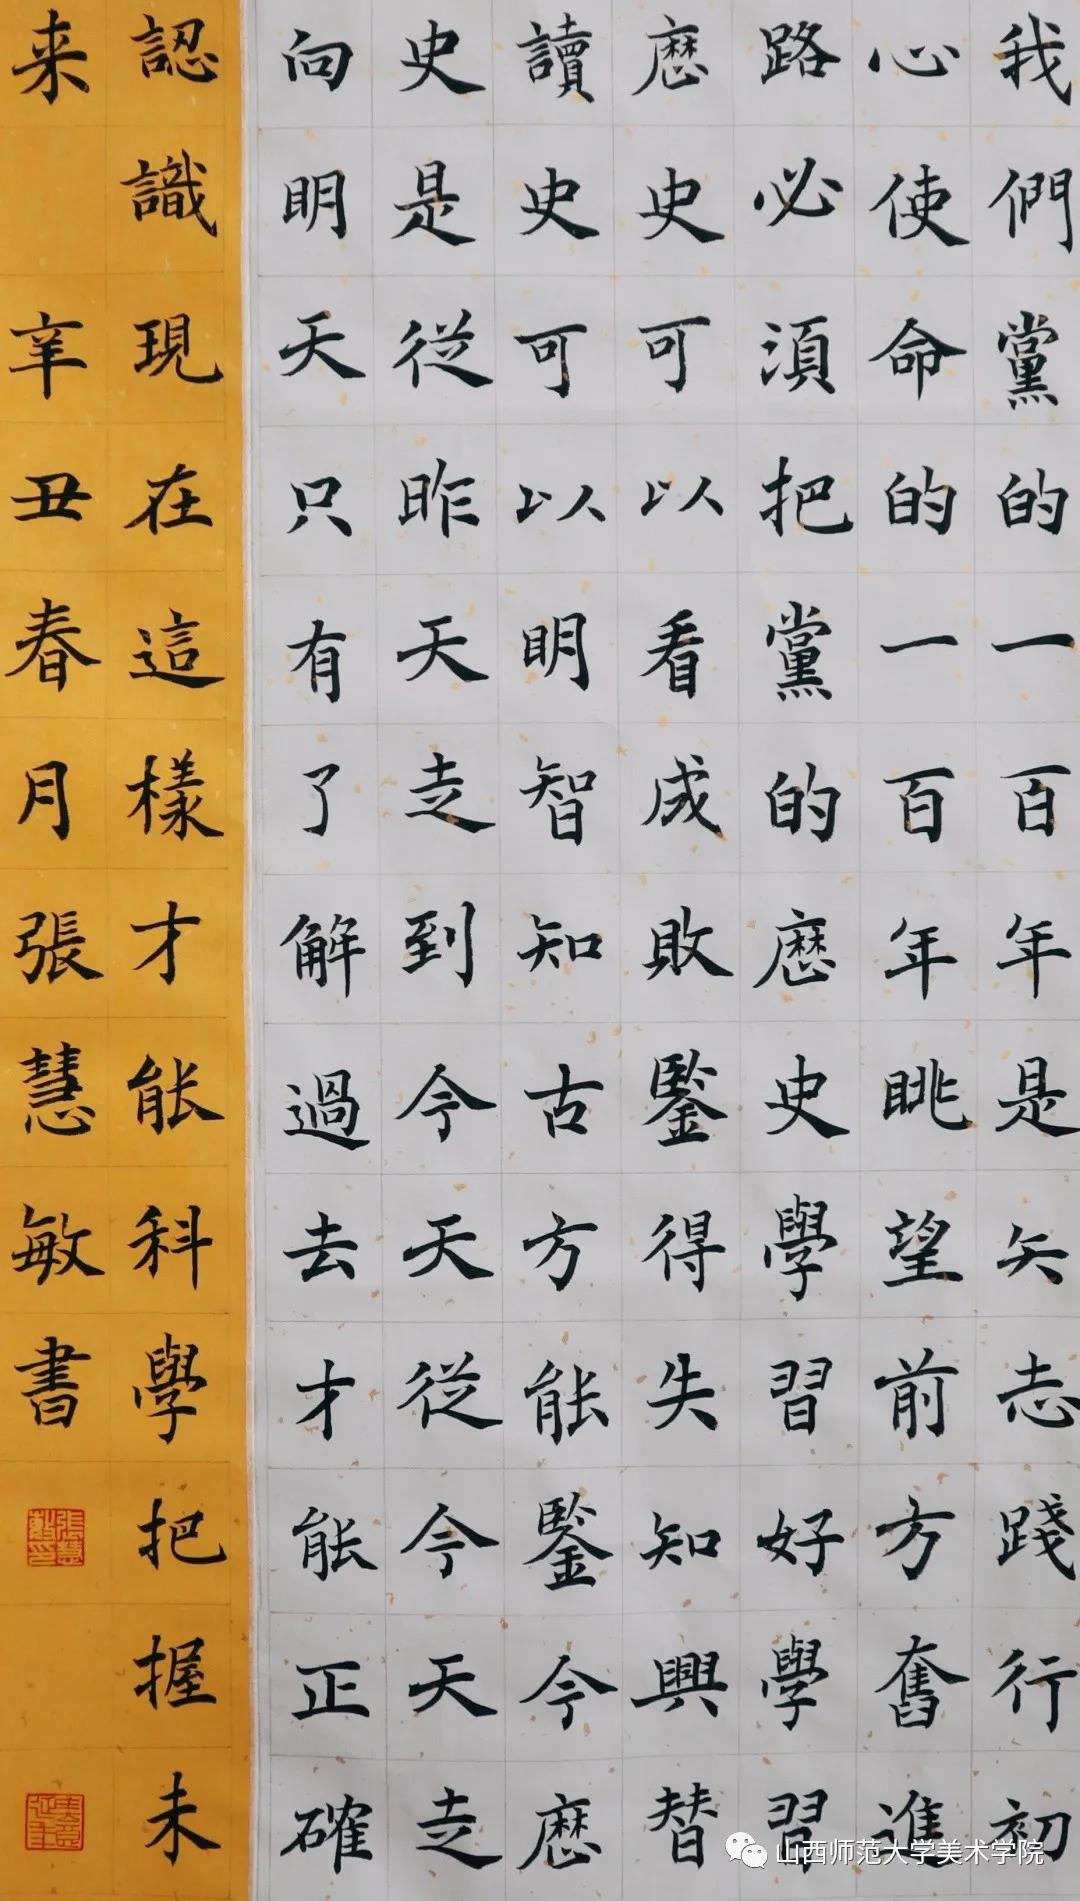 我們黨的一百年是矢志踐行初
心使命的一百年眺望前方奮進
路必須把黨的歷史學習好學習
歷史可以看成敗鑒得失知興替
讀史可以明智知古方能鑒今歷
史是從昨天走到今天從今天走
向明天只有了解過去才能正確
認識現在這樣才能科學把握未
来
辛丑春月張慧敏書
山西师范大学美术学院